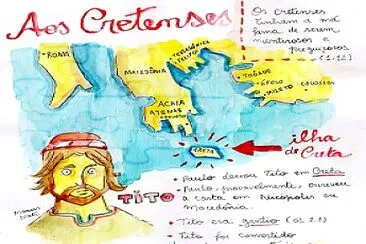 Aos Cretenses
Os Cretenses
tinham a má
fama de serem
mentirosos e
preguiçosos
(1.12)
ROMA
MACEDÔNIA
TESSALÔNICA
FILIPOS
TRÔADE
ÉFESO
MILETO
COLOSSOS
ACAIA
ATENAS
CORINTO
CRETA
ilha
de Creta
TITO
• Paulo deixou Tito em Creta
• Paulo, provavelmente, escreveu
a carta em Nicópolis ou
Macedônia.
• Tito era gentio (Gl 2.3)
• Tito foi convertido